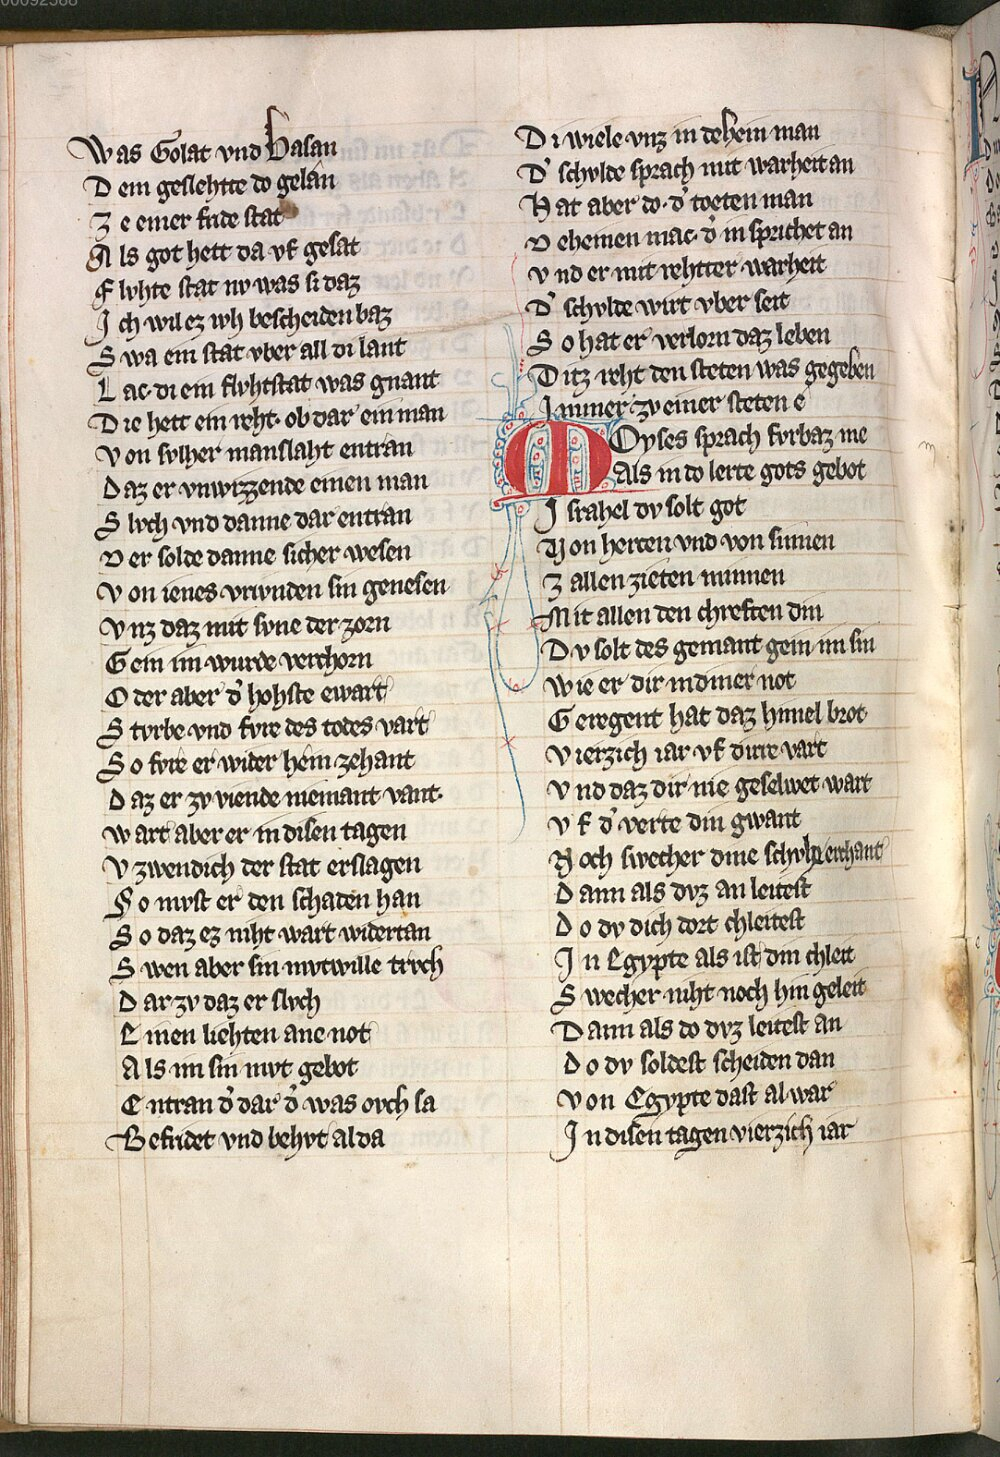 00092588
Was Golat vnd basan
Dem geslehtte do gelan
Ze einer fride stat
Als got hett da vf gesat
Flvhte stat nv was si daz
Jch wil ez ivh bescheiden baz
Swa ein stat vber all di lant
Lac di ein flvhtstat was gnant
Die hett ein reht· ob dar ein man
Von svlher manslaht entran
Daz er vnwizzende einen man
Slvch vnd danne dar entran
Der solde danne sicher wesen
Von ienes vrivnden sin genesen
Vnz daz mit svne der zorn
Gein im wurde verchorn
Oder aber d̓ hohste ewart
Stvrbe vnd fvre des todes vart
So fvre er wider heim zehant
Daz er zv viende niemant vant·
Wart aber er in disen tagen
Vzwendich der stat erslagen
So mvst er den schaden han
So daz ez niht wart widertan
Swen aber sin mvtwille trvch
Dar zv daz er slvch
Einen liehten ane not
Als im sin mvt gebot
Entran d̓ dar d̓ was ovch sa
Befridet vnd behvt al da
Di wiele vnz in dehein man
D̓ schvlde sprach mit warheit an
Hat aber do· d̓ toeten man
Deheinen mac· d̓ in sprichet an
Vnd er mit rehtter warheit
D̓ schvlde wirt vber seit
So hat er verlorn daz leben
Ditz reht den steten was gegeben
Jmmer zv einer steten e
Moyses sprach fvrbaz me
Als in do lerte gots gebot
Jsrahel dv solt got
Von herten vnd von sinnen
Z allen zieten minnen
Mit allen den chreften din
Dv solt des gemant gein im sin
Wie er dir in diner not
Geregent hat daz himel brot·
Vierzich iar vf dirre vart
Vnd daz dir nie geselwet wart
Vf d̓ verte din gwant
Noch swecher dine schvh erchant
Dann als dvz an leitest
Do dv dich dort chleitest
Jn Egypte als ist din chleit
Swecher niht noch hin geleit
Dann als do dvz leitest an
Do dv soldest scheiden dan
Von Egypte dast al war
Jn disen tagen vierzich iar